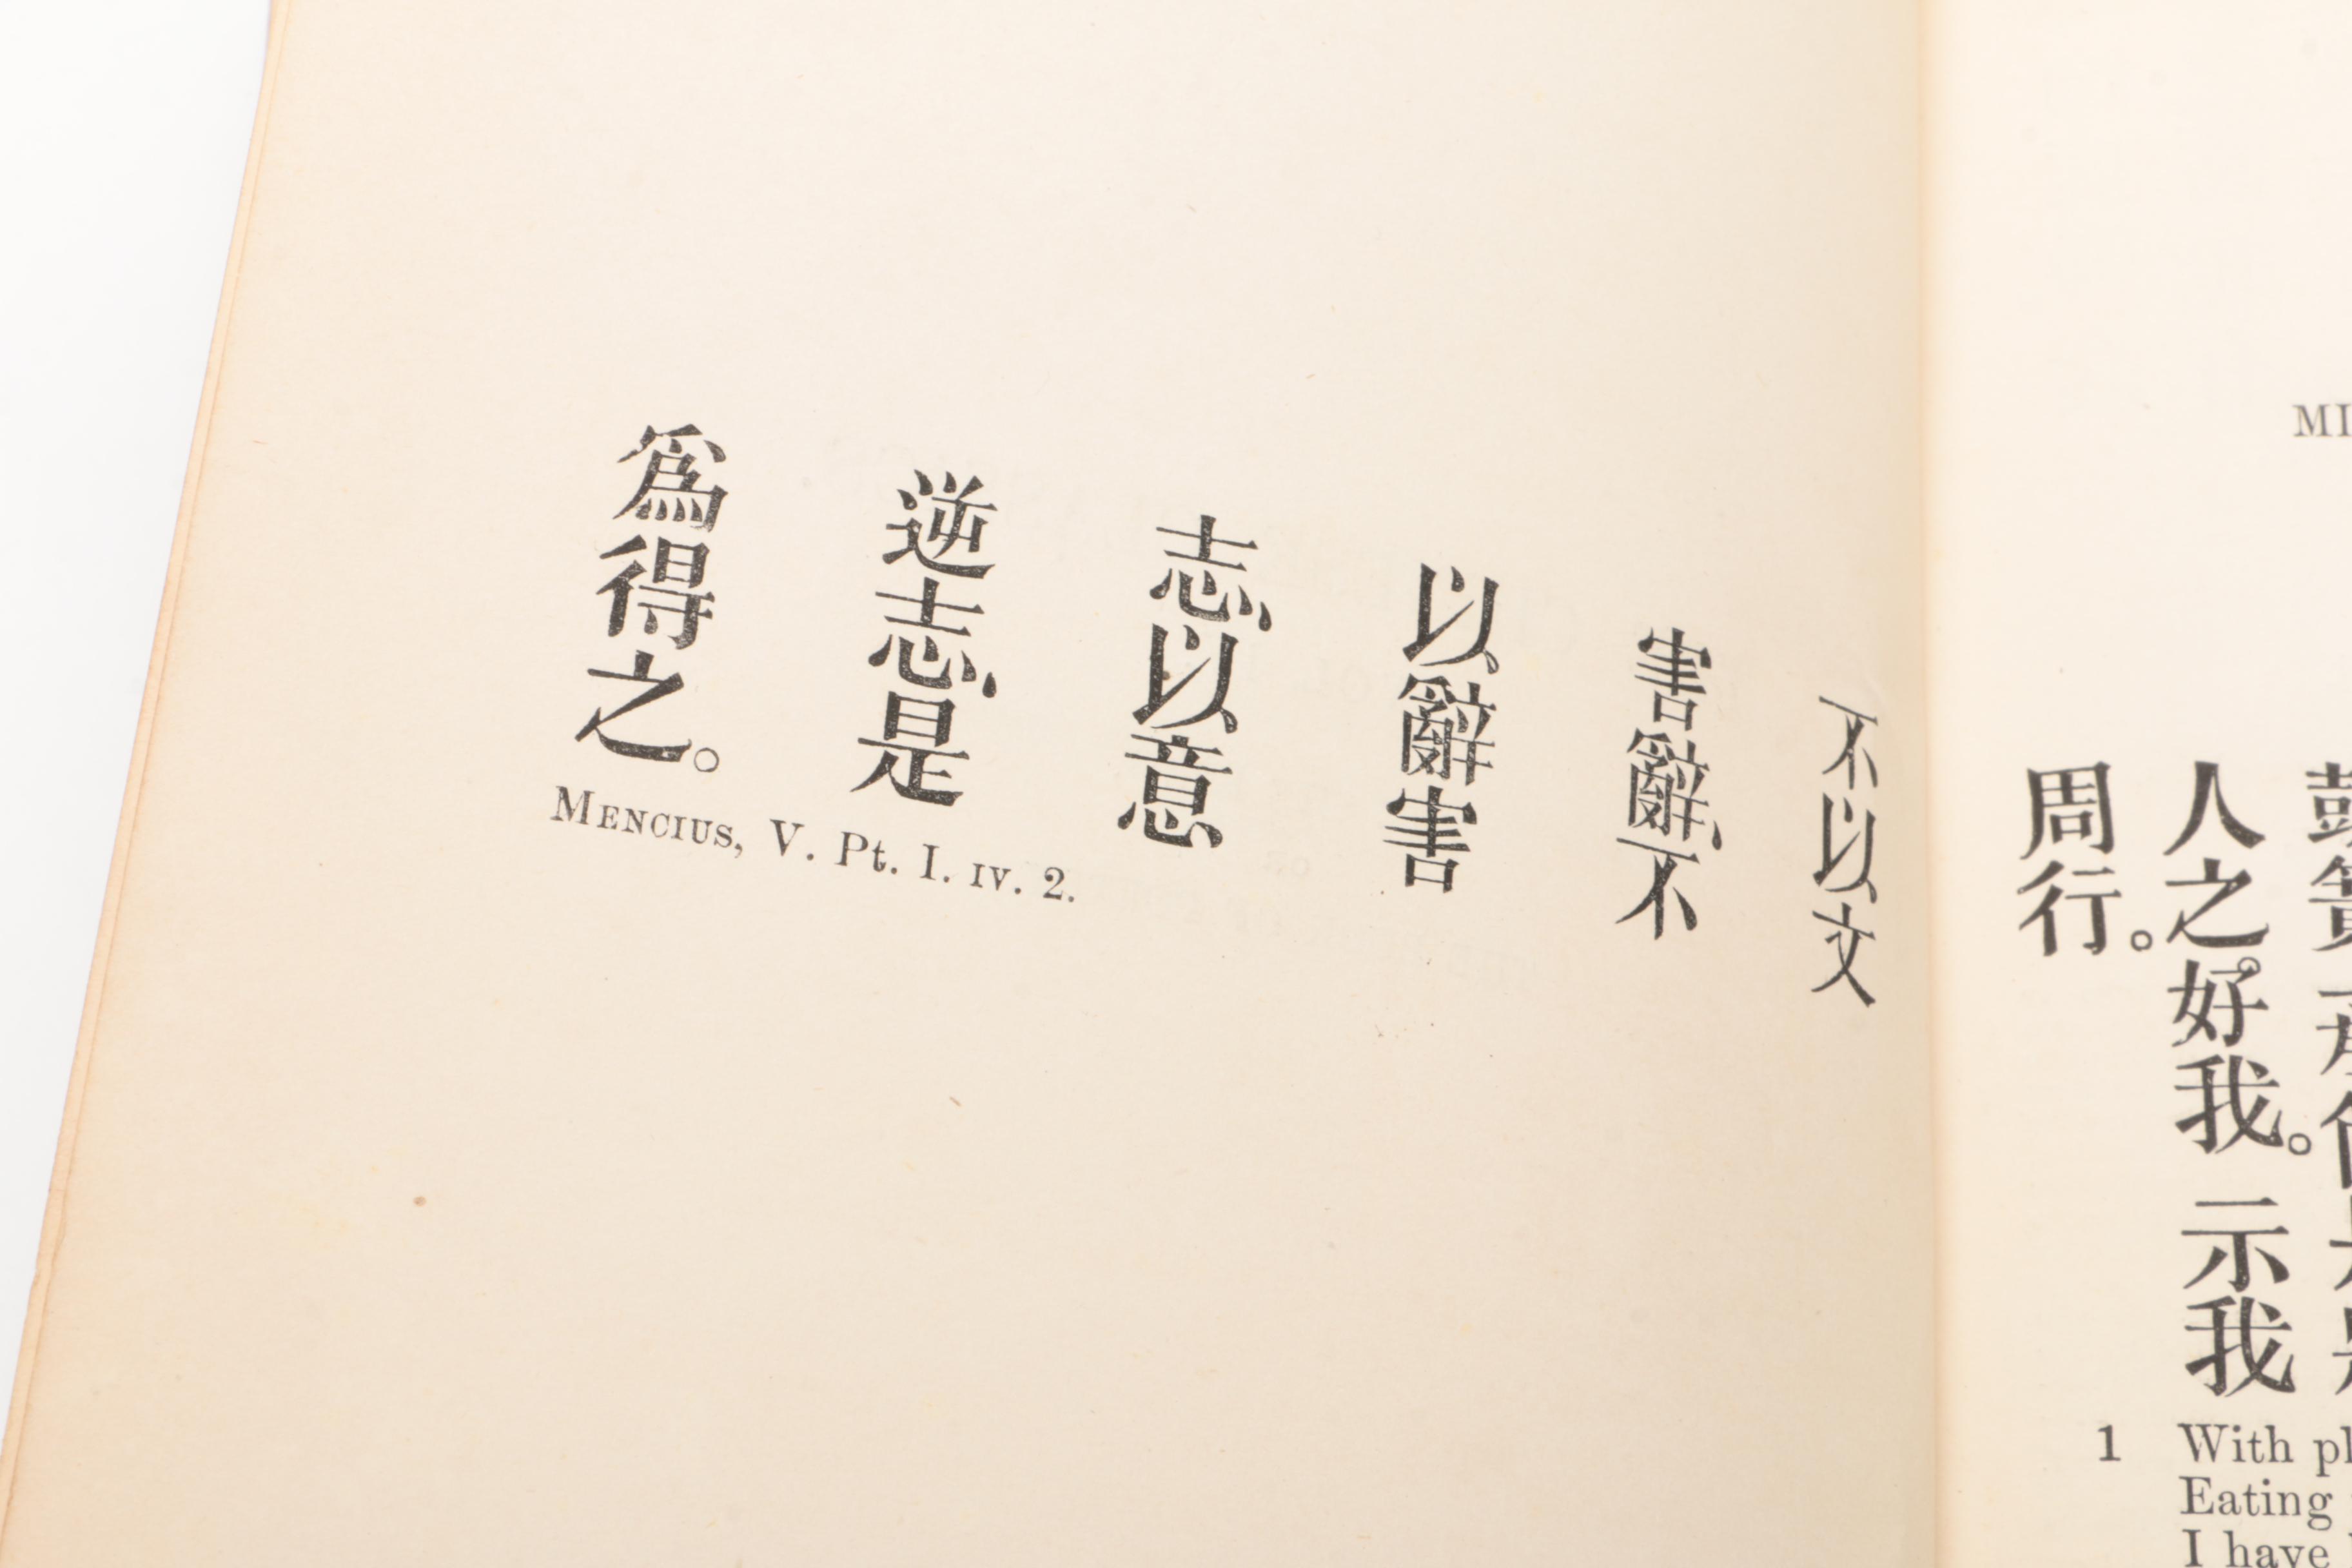 不以文
害辭、不
以辭害
志、以意
逆志、是
爲得之。
MENCIUS, V. Pt. I. IV. 2.
人之。好我。示我
周行。
1 With
Eating
I have